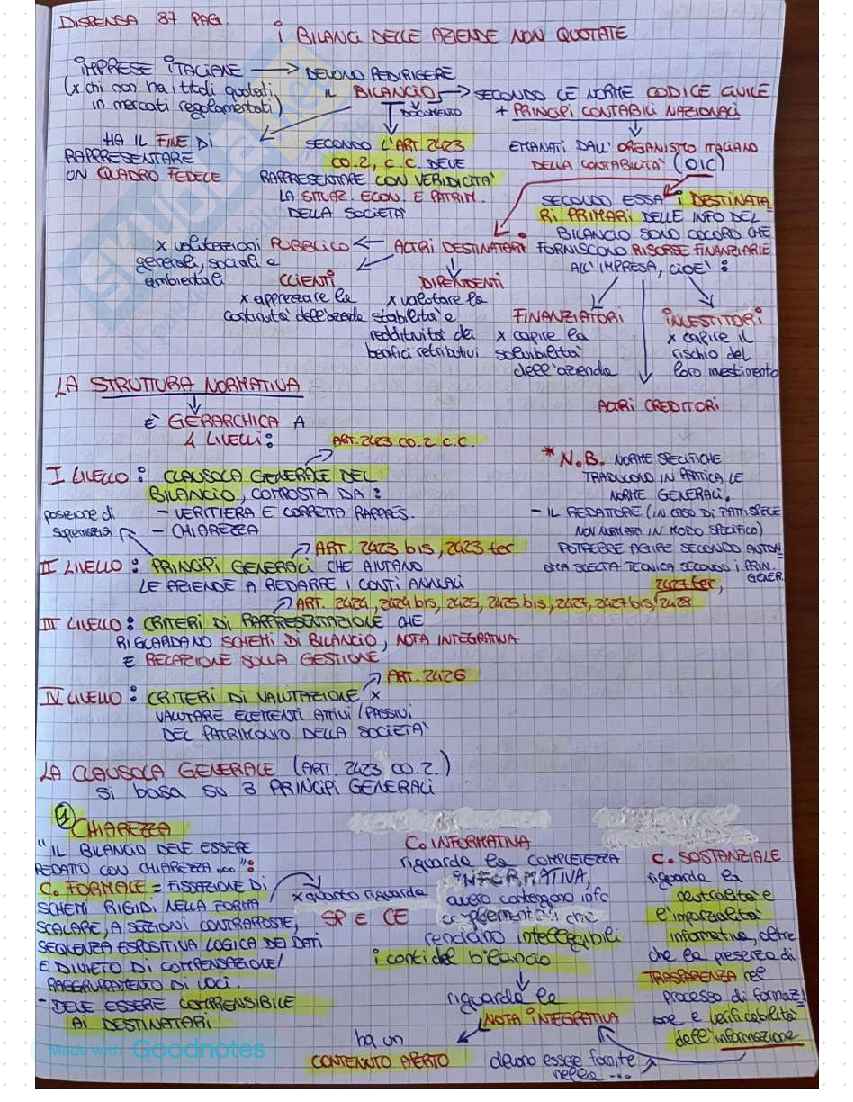 DISPENSA 87 PAG.
I BILANCI DELLE AZIENDE NON QUOTATE
IMPRESE ITALIANE → DEVONO REDIRIGERE
(x chi non ha titoli quotati
in mercati regolamentati)
IL BILANCIO → SECONDO LE NORME CODICE CIVILE
DOCUMENTO
+ PRINCIPI CONTABILI NAZIONALI
HA IL FINE DI
RAPPRESENTARE
UN QUADRO FEDELE
SECONDO L'ART. 2423
CO. 2, C.C. DEVE
RAPPRESENTARE CON VERIDICITA'
LA SITUAZ. ECON. E PATRIM.
DELLA SOCIETA'
EMANATI DALL'ORGANISMO ITALIANO
DELLA CONTABILITA' (OIC)
SECONDO ESSA I DESTINATA
RI PRIMARI DELLE INFO DEL
BILANCIO SONO COLORO CHE
FORNISCONO RISORSE FINANZIARIE
ALL'IMPRESA, CIOE':
x valutazioni PUBBLICO ← ALTRI DESTINATARI
generali, sociali e
ambientali
CLIENTI
x apprezzare la
continuità dell'azienda
DIPENDENTI
x valutare la
stabilità e
redditività dei
benefici retributivi
FINANZIATORI
x capire la
solvibilità
dell'azienda
INVESTITORI
x capire il
rischio del
loro investimento
ALTRI CREDITORI
LA STRUTTURA NORMATIVA
E' GERARCHICA A
4 LIVELLI:
ART. 2423 CO. 2 C.C.
I LIVELLO: CLAUSOLA GENERALE DEL
BILANCIO, COMPOSTA DA:
- VERITIERA E CORRETTA RAPPRES.
- CHIAREZZA
posizione di
supremazia
* N.B. NORME SPECIFICHE
TRADUCONO IN PRATICA LE
NORME GENERALI.
- IL REDATORE (IN CASO DI FATTISPECIE
NON NORMATO IN MODO SPECIFICO)
POTREBBE AGIRE SECONDO AUTON
SCELTA TECNICA SECONDO I PRIN.
GENER.
ART. 2423 bis, 2423 ter
II LIVELLO: PRINCIPI GENERALI CHE AIUTANO
LE AZIENDE A REDARRE I CONTI ANNUALI
2423 ter,
ART. 2424, 2424 bis, 2425, 2425 bis, 2427, 2427 bis, 2428
III LIVELLO: CRITERI DI RAPPRESENTAZIONE CHE
RIGUARDANO SCHEMI DI BILANCIO, NOTA INTEGRATIVA
E RELAZIONE SULLA GESTIONE
ART. 2426
IV LIVELLO: CRITERI DI VALUTAZIONE x
VALUTARE ELEMENTI ATTIVI/PASSIVI
DEL PATRIMONIO DELLA SOCIETA'
LA CLAUSOLA GENERALE (ART. 2423 CO. 2)
SI BASA SU 3 PRINCIPI GENERALI
1 CHIAREZZA
"IL BILANCIO DEVE ESSERE
REDATO CON CHIAREZZA ...":
C. FORMALE = FISSAZIONE DI
SCHEMI RIGIDI NELLA FORMA
SCALARE, A SEZIONI CONTRAPPOSTE,
SEQUENZA ESPOSITIVA LOGICA DEI DATI
E DIVIETO DI COMPENSAZIONE/
RAGGRUPPAMENTO DI VOCI.
- DEVE ESSERE COMPRENSIBILE
AI DESTINATARI
x quanto riguarda
SP E CE
C. INFORMATIVA
riguarda la COMPLETEZZA
INFORMATIVA,
info
supplementari che
rendano intellegibili
i conti del bilancio
riguarda la
NOTA INTEGRATIVA
ha un
CONTENUTO APERTO
C. SOSTANZIALE
riguarda la
neutralità e
l'imparzialità
informativa, oltre
che la presenza di
TRASPARENZA nel
processo di formaz
ione e verificabilità
dell'informazione
devono essere fornite
nella ...
SKUOLA.net
Made with Goodnotes